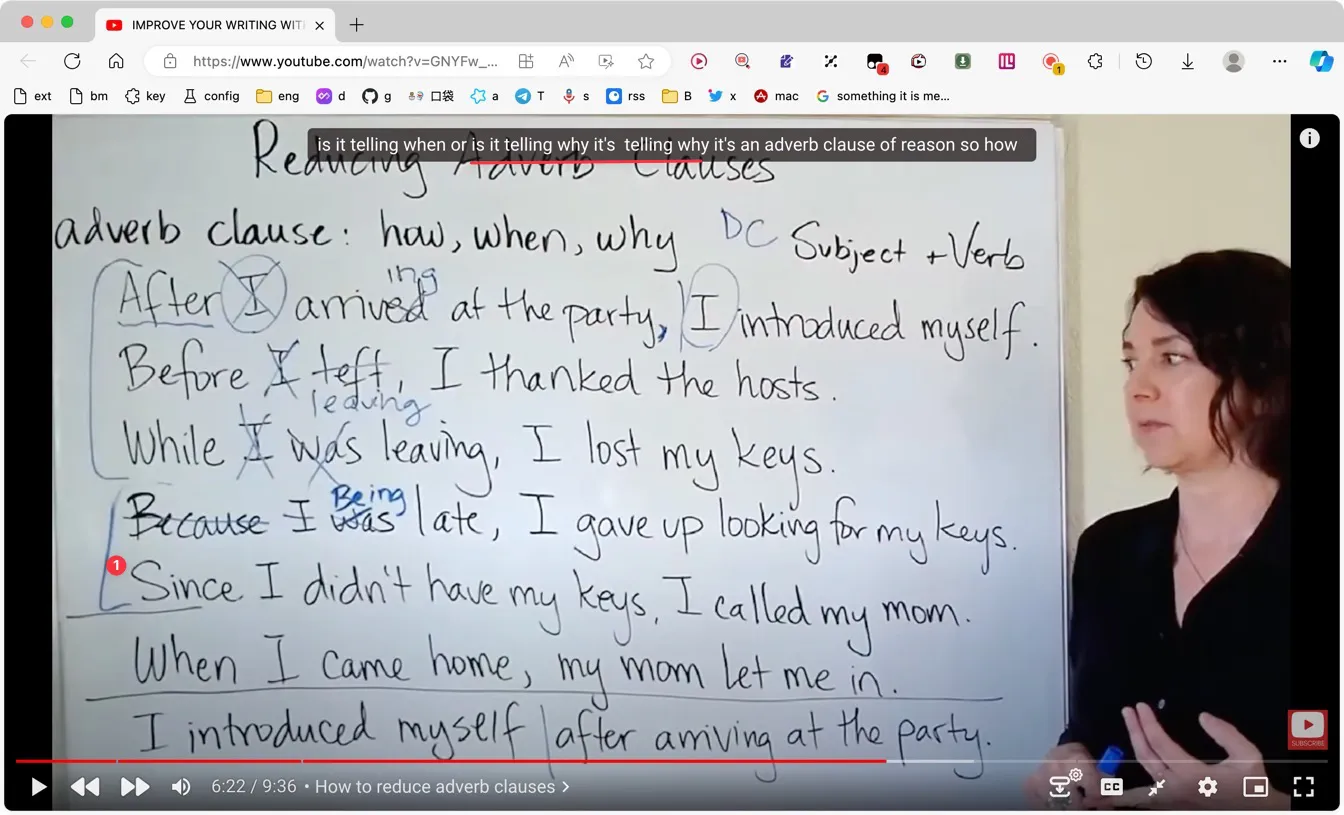 IMPROVE YOUR WRITING WIT
https://www.youtube.com/watch?v=GNYFw_...
4
1
ext bm key config eng d g 口袋 a T s rss B x mac something it is me...
is it telling when or is it telling why it's telling why it's an adverb clause of reason so how
Reducing Adverb Clauses
adverb clause: how, when, why DC Subject + Verb
ing
After I arrived at the party, I introduced myself.
Before I left, I thanked the hosts.
leaving
While I was leaving, I lost my keys.
Being
Because I was late, I gave up looking for my keys.
1
Since I didn't have my keys, I called my mom.
When I came home, my mom let me in.
I introduced myself after arriving at the party.
SUBSCRIBE
6:22 / 9:36 • How to reduce adverb clauses >
CC